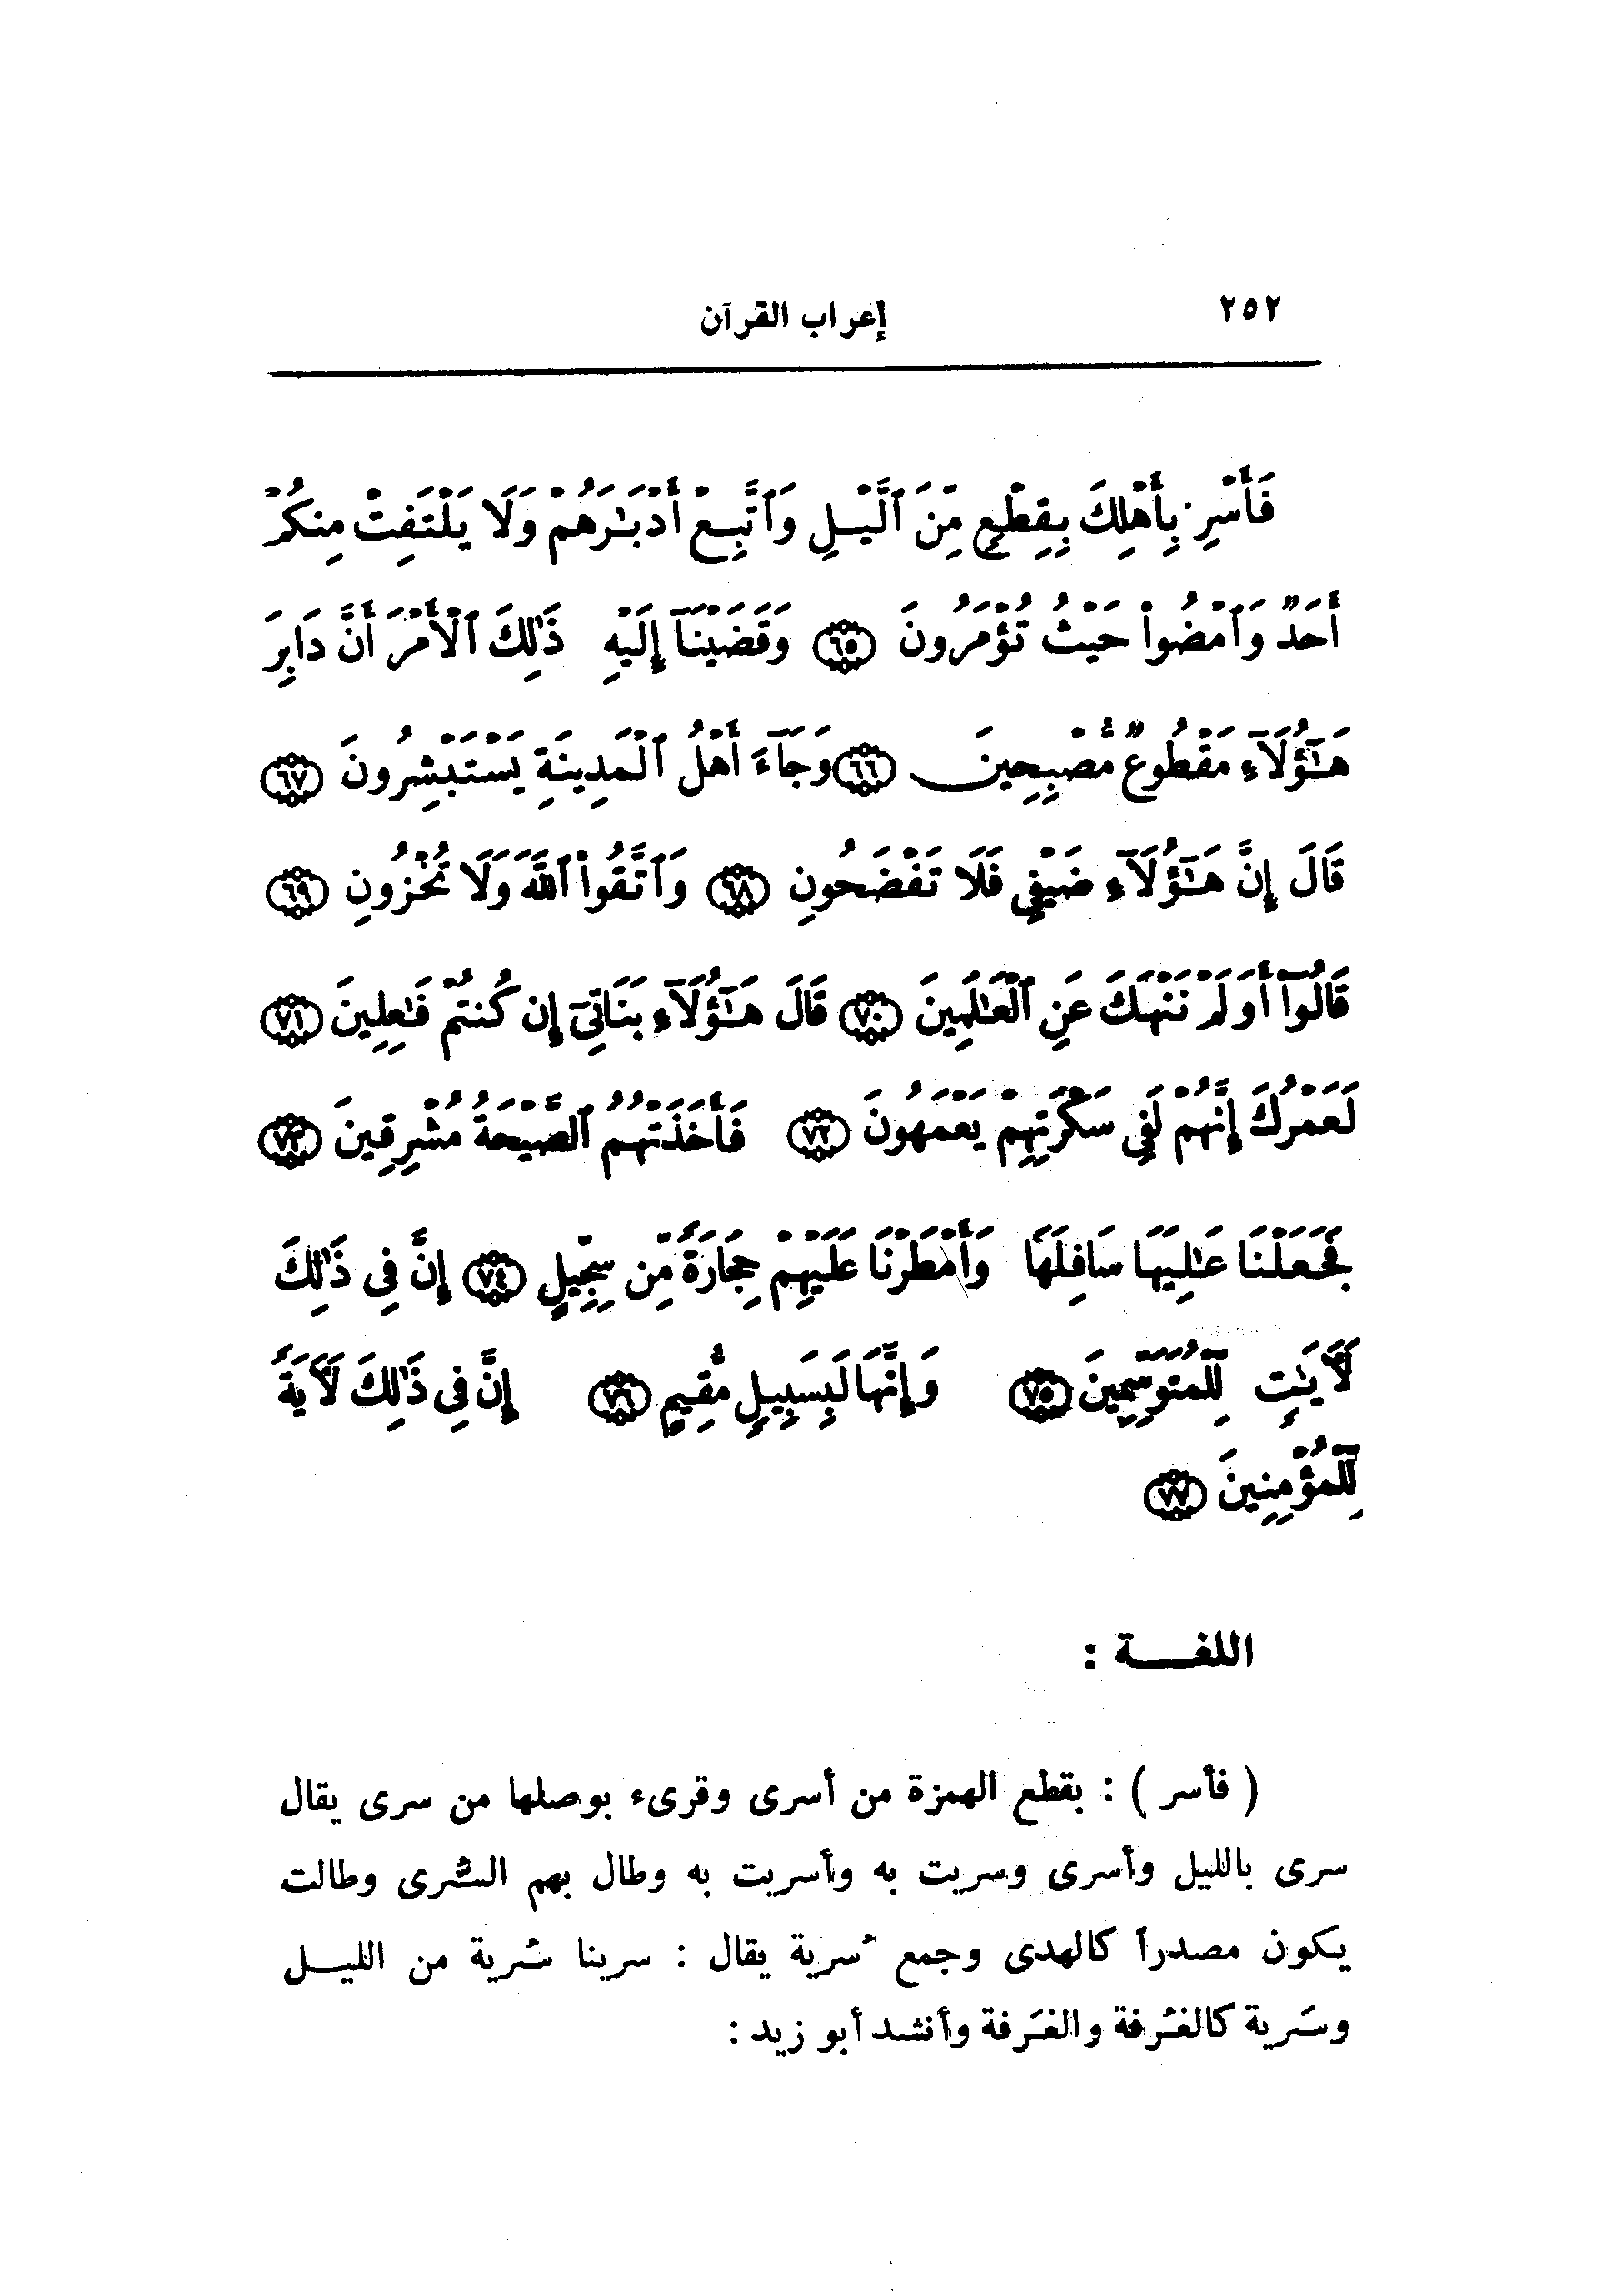 ٢٥٢
إعراب القرآن
فَأَسْرِ بِأَهْلِكَ بِقِطْعٍ مِّنَ ٱلَّيْلِ وَٱتَّبِعْ أَدْبَٰرَهُمْ وَلَا يَلْتَفِتْ مِنكُمْ
أَحَدٌ وَٱمْضُوا۟ حَيْثُ تُؤْمَرُونَ ﴿٦٥﴾ وَقَضَيْنَآ إِلَيْهِ ذَٰلِكَ ٱلْأَمْرَ أَنَّ دَابِرَ
هَٰٓؤُلَآءِ مَقْطُوعٌ مُّصْبِحِينَ ﴿٦٦﴾ وَجَآءَ أَهْلُ ٱلْمَدِينَةِ يَسْتَبْشِرُونَ ﴿٦٧﴾
قَالَ إِنَّ هَٰٓؤُلَآءِ ضَيْفِى فَلَا تَفْضَحُونِ ﴿٦٨﴾ وَٱتَّقُوا۟ ٱللَّهَ وَلَا تُخْزُونِ ﴿٦٩﴾
قَالُوٓا۟ أَوَلَمْ نَنْهَكَ عَنِ ٱلْعَٰلَمِينَ ﴿٧٠﴾ قَالَ هَٰٓؤُلَآءِ بَنَاتِىٓ إِن كُنتُمْ فَٰعِلِينَ ﴿٧١﴾
لَعَمْرُكَ إِنَّهُمْ لَفِى سَكْرَتِهِمْ يَعْمَهُونَ ﴿٧٢﴾ فَأَخَذَتْهُمُ ٱلصَّيْحَةُ مُشْرِقِينَ ﴿٧٣﴾
فَجَعَلْنَا عَٰلِيَهَا سَافِلَهَا وَأَمْطَرْنَا عَلَيْهِمْ حِجَارَةً مِّن سِجِّيلٍ ﴿٧٤﴾ إِنَّ فِى ذَٰلِكَ
لَءَايَٰتٍ لِّلْمُتَوَسِّمِينَ ﴿٧٥﴾ وَإِنَّهَا لَبِسَبِيلٍ مُّقِيمٍ ﴿٧٦﴾ إِنَّ فِى ذَٰلِكَ لَءَايَةً
لِّلْمُؤْمِنِينَ ﴿٧٧﴾
اللغـــة :
( فأسر ) : بقطع الهمزة من أسرى وقرىء بوصلها من سرى يقال
سرى بالليل وأسرى وسريت به وأسريت به وطال بهم السُّرى وطالت
يكون مصدراً كالهدى وجمع سُرية يقال : سرينا سُرية من الليــل
وسَرية كالغُرفة والغَرفة وأنشد أبو زيد :